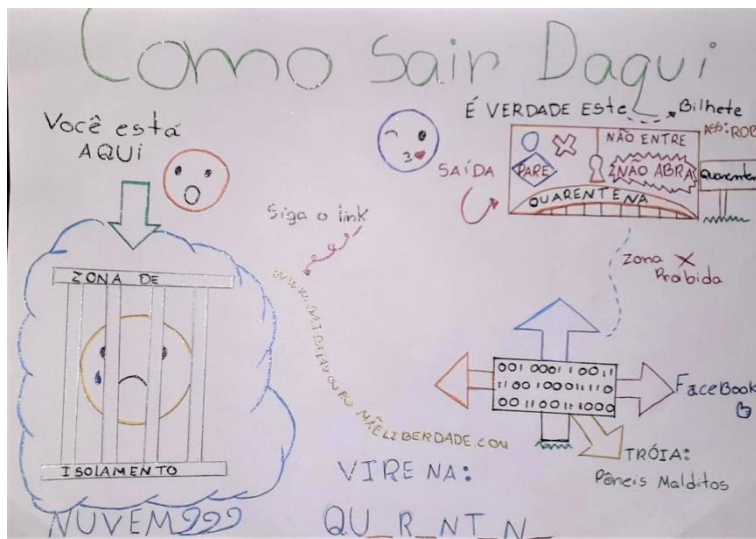 Como Sair Daqui
Você está
AQUI
ZONA DE
ISOLAMENTO
NUVEM
Siga o link
É VERDADE ESTE Bilhete
ASS: ROB
SAÍDA
PARE
NÃO ENTRE
NÃO ABRA
QUARENTENA
Quarenten
Zona X
Proibida
001 0001 1 0011
11 00 100011110
00 110011 1000
FaceBook
TRÓIA:
Pâneis Malditos
VIRE NA:
QU_R_NT_N_